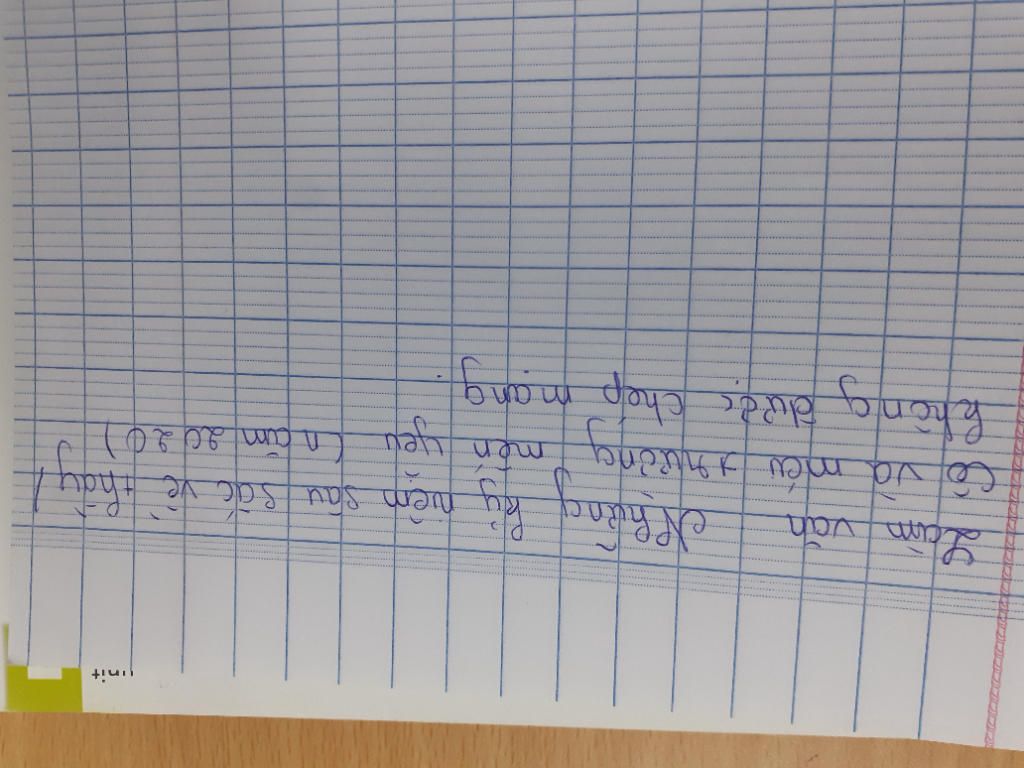 unit
Làm văn Những kỷ niệm sâu sắc về thầy/
cô và méu trường mến yeu (năm 2020)
không được chép mạng.